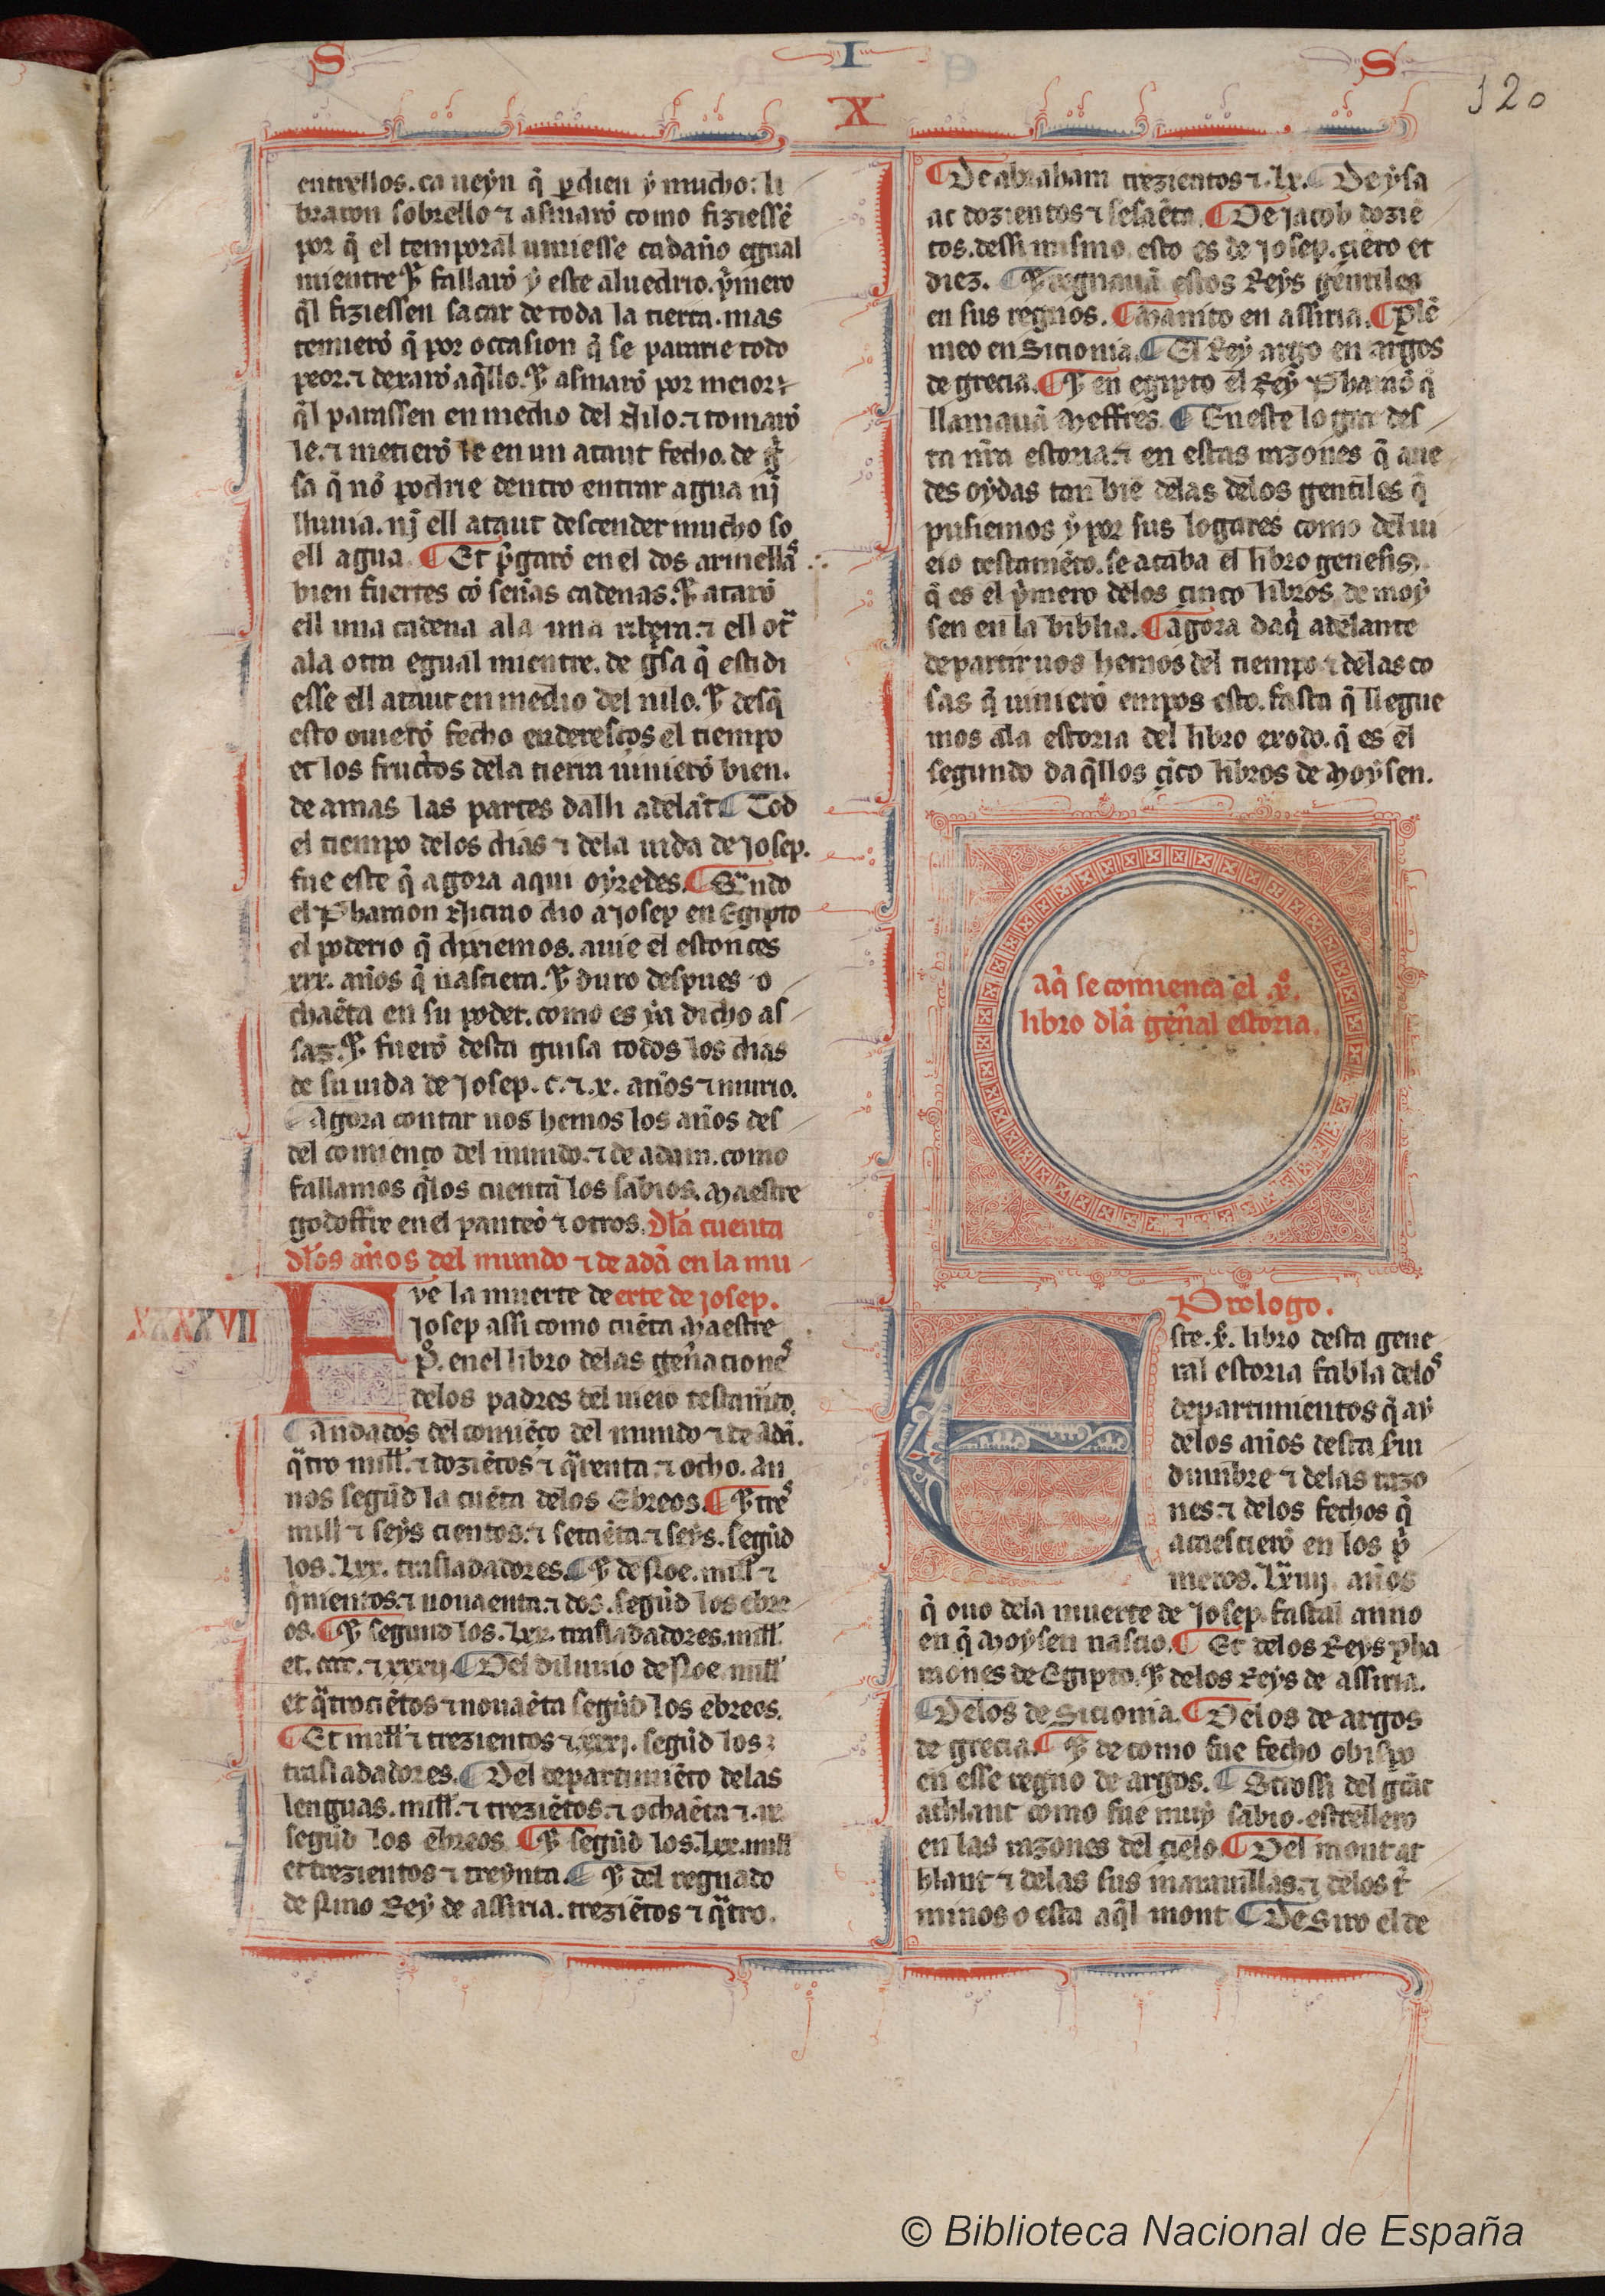 S I S
X
120
entrellos. ca ueyen q̃ ꝑdien y mucho. li
braron sobrello ⁊ asmarõ como fiziessẽ
por q̃ el temporal uiniesse cadaño egual
mientre. ⁊ fallarõ y este aluedrio. p̃mero
q̃l fiziessen sacar de toda la tierra. mas
temierõ q̃ por occasion q̃ se pararie todo
peor. ⁊ dexarõ aq̃llo. ⁊ asmarõ por meior
q̃l parassen en medio del Nilo. ⁊ tomarõ
le. ⁊ metierõ le en un ataut fecho. de g̃
sa q̃ nõ podrie dentro entrar agua nĩ
lluuia. nĩ ell ataut descender mucho so
ell agua. ¶ Et p̃garõ en el dos armellas
bien fuertes cõ señas cadenas. ⁊ atarõ
ell una cadena ala una ribera. ⁊ ell otr̃
ala otra egual mientre. de g̃sa q̃ estidi
esse ell ataut en medio del nilo. ⁊ desq̃
esto ouierõ fecho enderesços el tiempo
et los fructos dela tierra uinierõ bien.
de amas las partes dalli adelãt ¶ Tod
el tiempo delos dias ⁊ dela uida de Josep.
fue este q̃ agora aqui oyredes. ¶ Quãdo
el Pharaon Nicrao dio a Josep en Egipto
el poderio q̃ dixiemos. auie el estonces
xxx. años q̃ nasciera. ⁊ duro despues o
chaẽta en su poder. como es ya dicho as
saz. ⁊ fuerõ desta guisa todos los dias
de su uida de Josep. c. ⁊. x. años ⁊ murio.
¶ Agora contar uos hemos los años des
del comienço del mundo. ⁊ de adam. como
fallamos q̃los cuentã los sabios. Maestre
godoffre en el panteõ ⁊ otros. Dla cuenta
dlos años del mundo ⁊ de adã en la mu
XXXXVII
Fue la muerte de erte de josep.
Josep assi como cuẽta Maestre
P̃. en el libro delas geñaciones
delos padres del uieio testam̃to.
¶ Andados del comiẽço del mundo ⁊ de Adã.
q̃tro mill. ⁊ doziẽtos ⁊ q̃renta ⁊ ocho. an
nos segũd la cuẽta delos Ebreos. ¶ ⁊ tres
mill ⁊ seys cientos. ⁊ setaẽta. ⁊ seys. segũd
los. Lxx. trasladadores. ¶ ⁊ de Noe. mill ⁊
q̃nientos. ⁊ nouaenta. ⁊ dos. segũd los ebre
os. ¶ ⁊ segund los. Lxx. trasladadores. mill.
et. ccc. ⁊ xxxij. ¶ Del diluuio de Noe. mill
et q̃trociẽtos ⁊ nouaẽta segũd los ebreos.
¶ Et mill ⁊ trezientos ⁊ xxxj. segũd los
trasladadores. ¶ Del departimiẽto delas
lenguas. mill. ⁊ treziẽtos. ⁊ ochaẽta ⁊. ix
segũd los ebreos. ¶ ⁊ segũd los. Lxx. mill
et trezientos ⁊ treynta. ¶ ⁊ del regnado
de Nino Rey de assiria. treziẽtos ⁊ q̃tro.
¶ De abraham trezientos ⁊. Lx. ¶ De ysa
ac dozientos ⁊ sesaẽta. ¶ De jacob doziẽ
tos. dessi mismo. esto es de Josep. çiẽto et
diez. ¶ ⁊ regnauã estos Reys gentiles
en sus regnos. ¶ Mamito en assiria. ¶ Plẽ
meo en Sicionia. ¶ El Rey argo en argos
de grecia. ¶ ⁊ en egipto el Rey Pharaõ q̃
llamauã Meffres. ¶ En este logar des
ta nr̃a estoria. ⁊ en estas razones q̃ aue
des oydas tan biẽ delas delos gentiles q̃
pusiemos y por sus logares como del ui
eio testamẽto. se acaba el libro genesis.
q̃ es el p̃mero delos çinco libros de moy
sen en la biblia. ¶ agora daq̃ adelante
departir uos hemos del tiempo ⁊ delas co
sas q̃ uinierõ empos esto. fasta q̃ llegue
mos ala estoria del libro exodo. q̃ es el
segundo daq̃llos çĩco libros de Moysen.
Aq̃ se comiença el .xº.
libro dla geñal estoria.
Prologo.
Este. xº. libro desta gene
ral estoria fabla delos
departimientos q̃ ay
delos años desta ser
dumbre ⁊ delas razo
nes. ⁊ delos fechos q̃
acaescierõ en los p̃
meros. Lxiiij. años
q̃ ouo dela muerte de Josep. fastal anno
en q̃ Moysen nascio. ¶ Et delos Reys pha
raones de Egipto. ⁊ delos Reys de assiria.
¶ Delos de Sicionia. ¶ Delos de argos
de grecia. ¶ ⁊ de como fue fecho obispo
en esse regno de argos. ¶ Otrossi del grãt
athlant como fue muy sabio. estrellero
en las razones del cielo. ¶ Del mont at
hlant ⁊ delas sus marauillas. ⁊ delos t̃
minos o esta aq̃l mont ¶ De Siro el de
© Biblioteca Nacional de España